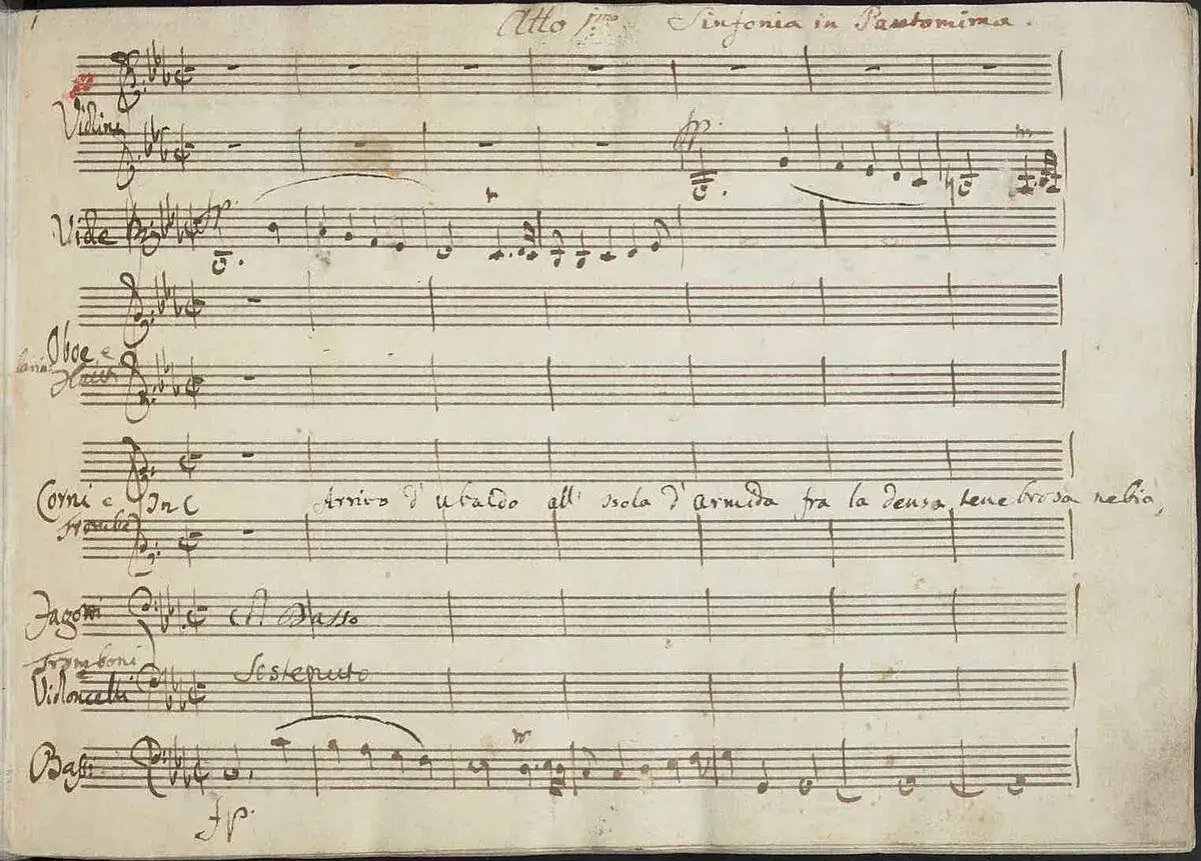 1
Atto jmo Sinfonia in Pantomima.
Violini
fp.
Viole
fp.
Oboe e
Corni e In C
Arrivo d' ubaldo all' Isola d' armida fra la densa tenebrosa nebia,
Trombe
Fagotti
Il Basso
Tromboni
Sostenuto
Violoncelli
Bassi
fp.